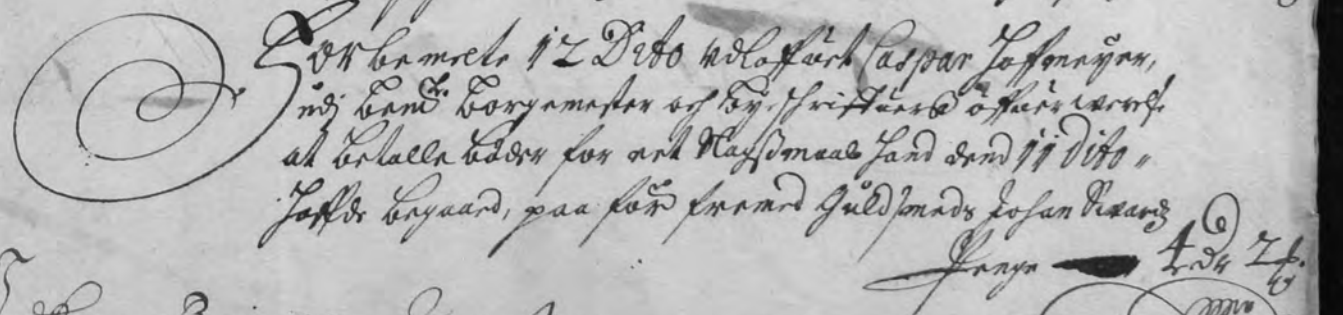 Forbemelte 12 Dito Udloffuet Caspar Hoffmeyer,
udj bemte. Borgemester och Byschriffuers offueruerelse
at betalle bøder for eet Slagssmaal hand dend 11 Dito
haffde begaaed, paa för fremed Guldsmeds Johan Siuardz
Penge 4 Dr 2